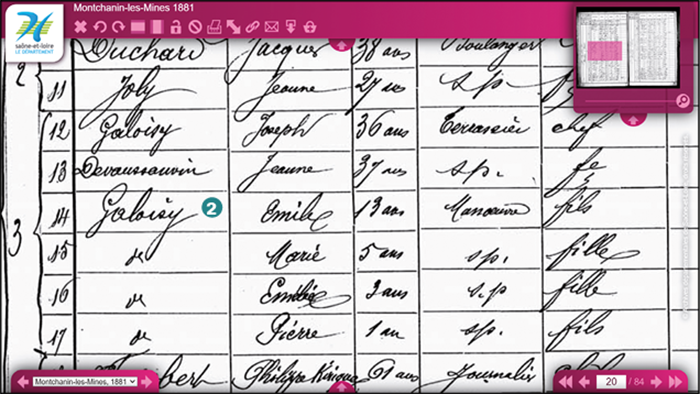 Montchanin-les-Mines 1881
saône-et-loire
LE DÉPARTEMENT
2 Duchard Jacques 38 ans Boulanger
11 Joly Jeanne 27 ans s.p.
12 Galoisy Joseph 36 ans Terrassier chef
13 Devaussauvin Jeanne 37 ans sp. fe
3 14 Galoisy 2 Emile 13 ans Manœuvre fils
15 de Marie 5 ans sp. fille
16 de Emilie 3 ans s.p fille
17 de Pierre 1 an sp. fils
Philippe 61 ans Journalier
Montchanin-les-Mines, 1881
20 / 84